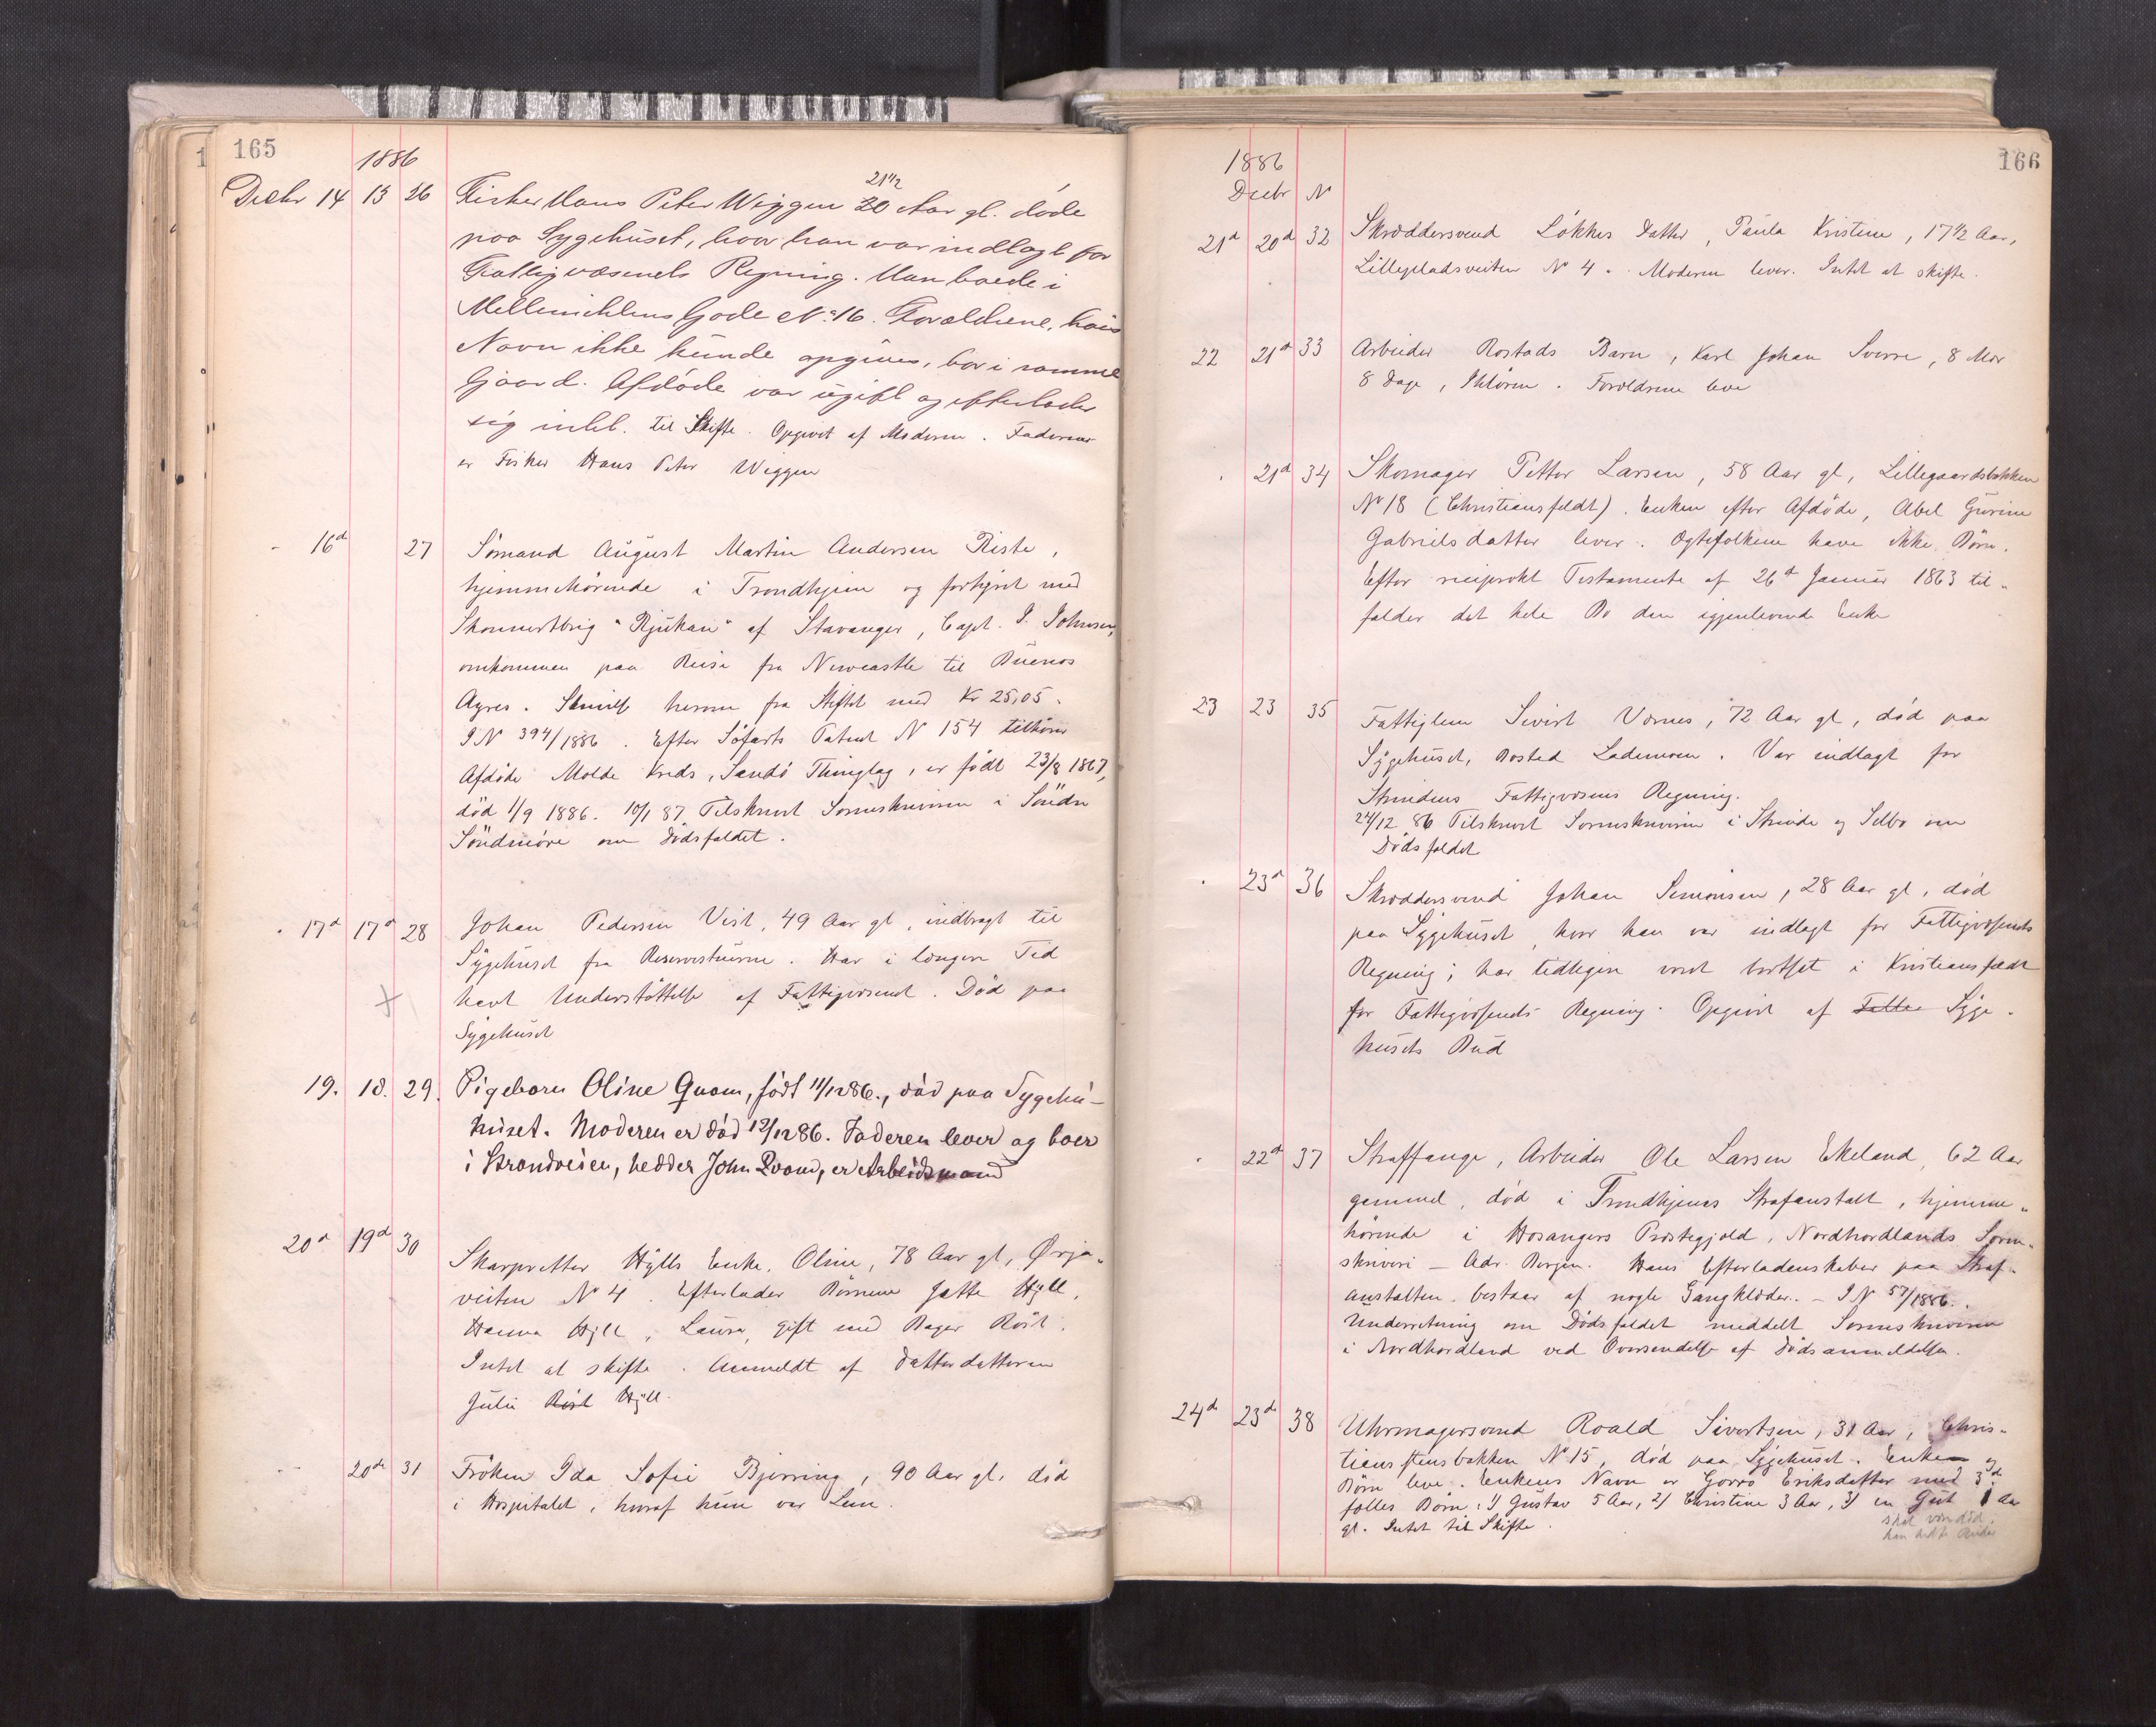 165
1886
Decbr 14 13 26 Fisker Hans Peter Wiggen 20 Aar gl. døde
21 1/2
paa Sygehuset, hvor han var indlagt for
Fattigvæsenets Regning. Han boede i
Mellemihlens Gade No 16. Forældrene, hvis
Navn ikke kunde opgives, bor i samme
Gaard. Afdøde var ugift og efterlader
sig intet til Skifte. Opgivet af Moderen. Faderens
er Fisker Hans Peter Wiggen
- 16d 27 Sømand August Martin Andersen Riste,
hjemmehørende i Trondhjem og forhyret med
Skonnertbrig "Rjukan" af Stavanger, Capt. P. Johnsen,
omkommen paa Reise fra Newcastle til Buenos
Ayres. Skrivelse herom fra Stiftet med Kr 25,05.
J N 394/1886. Efter Søfarts Patent N 154 tilhører
Afdøde Molde Kreds, Sandø Thinglag, er født 23/8 1867,
død 1/9 1886. 10/1 87 Tilskrevet Sorenskriveren i Søndre
Søndmøre om Dødsfaldet.
17d 17d 28 Johan Pedersen Vist, 49 Aar gl, indbragt til
Sygehuset fra Reservestuerne. Har i længere Tid
havt Understøttelse af Fattigvæsenet. Død paa
Sygehuset
19. 18. 29. Pigebarn Oline Qvam, født 11/12 86., død paa Sygehu-
huset. Moderen er død 12/12 86. Faderen lever og boer
i Strandveien, hedder John Qvam, er Arbeidsmand
20d 19d 30 Skarpretter Hylls Enke, Oline, 78 Aar gl, Ørja-
veiten No 4. Efterlader Børnene Jette Hyll,
Hanna Hyll, Laura, gift med Bager Röst.
Intet at skifte. Anmeldt af Datterdatteren
Julie Röst Hyll.
20de 31 Frøken Ida Sofie Bjerring, 90 Aar gl. død
i Hospitalet, hvoraf hun var Lem.
166
1886
Decbr N
21d 20d 32 Skræddersvend Løkkes Datter, Paula Kristine, 17 1/2 Aar,
Lillepladsveiten No 4. Moderen lever. Intet at skifte.
22 21d 33 Arbeider Rostads Barn, Karl Johan Sverre, 8 Mdr
8 Dage, Ihlören. Forældrene leve
21d 34 Skomager Petter Larsen, 58 Aar gl, Lillegaardsbakken
No 18 (Christiansfeldt). Enken efter Afdøde, Abel Gurine
Gabrielsdatter lever. Ægtefolkene have ikke Børn.
Efter reciprokt Testamente af 26d Januar 1863 til-
falder det hele Bo den igjenlevende Enke
23 23 35 Fattiglem Sivert Værnes, 72 Aar gl, død paa
Sygehuset, Bosted Lademoen. Var indlagt for
Strindens Fattigvæsens Regning.
24/12 86 Tilskrevet Sorenskriveren i Strinde og Selbo om
Dødsfaldet
23d 36 Skræddersvend Johan Simonsen, 28 Aar gl, død
paa Sygehuset, hvor han var indlagt for Fattigvæsenets
Regning; har tidligere været bortsat i Kristiansfeldt
for Fattigvæsenets Regning. Opgivet af Fatte Syge-
husets Bud
22d 37 Straffange, Arbeider Ole Larsen Ekeland, 62 Aar
gammel, død i Trondhjems Strafanstalt, hjemme-
hörende i Hosangers Præstegjæld, Nordhordlands Soren-
skriveri - Adr. Bergen. Hans Efterladenskaber paa Straf-
anstalten bestaar af nogle Gangklæder. - J N 57/1886.
Underretning om Dødsfaldet meddelt Sorenskriveren
i Nordhordland ved Oversendelse af Dødsanmeldelsen.
24de 23de 38 Uhrmagersvend Roald Sivertsen, 31 Aar, Chris-
tianstensbakken No 15, død paa Sygehuset. Enken og
Børn leve. Enkens Navn er Gorro Eriksdatter med 3de
fælles Børn: 1) Gustav 5 Aar, 2) Christine 3 Aar, 3) en Gut 1 Aar
gl. Intet til Skifte.
skal være død.